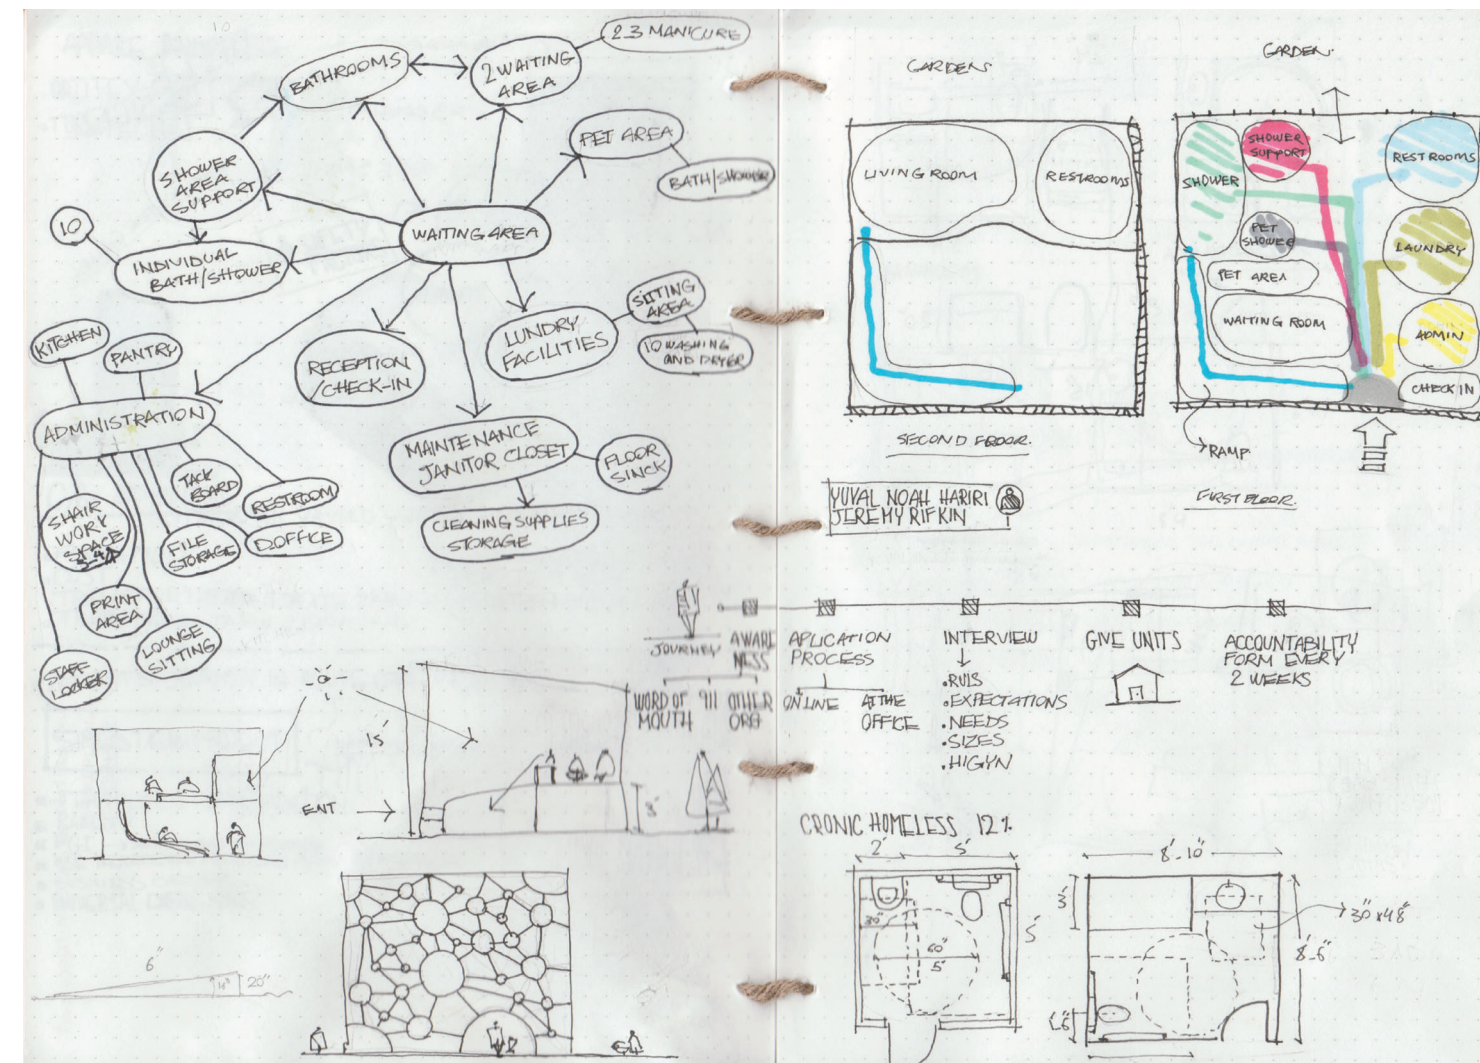 10
BATHROOMS
2 WAITING
AREA
2-3 MANICURE
PET AREA
BATH/SHOWER
SHOWER
AREA
SUPPORT
10
INDIVIDUAL
BATH/SHOWER
WAITING AREA
KITCHEN
PANTRY
RECEPTION
/CHECK-IN
LUNDRY
FACILITIES
SITTING
AREA
10 WASHING
AND DRYER
ADMINISTRATION
MAINTENANCE
JANITOR CLOSET
FLOOR
SINCK
CLEANING SUPPLIES
STORAGE
TACK
BOARD
RESTROOM
SHAIR
WORK
SPACE
FILE
STORAGE
D.OFFICE
PRINT
AREA
LOUNGE
SITTING
STAFF
LOCKER
15'
ENT
3'
6"
20"
GARDEN
LIVING ROOM
RESTROOMS
SECOND FLOOR.
GARDEN.
SHOWER
SHOWER
SUPPORT
RESTROOMS
PET
SHOWER
LAUNDRY
PET AREA
WAITING ROOM
ADMIN
CHECK IN
RAMP
FIRST FLOOR.
YUVAL NOAH HARIRI
JEREMY RIFKIN
JOURNEY
AWARE
NESS
WORD OF
MOUTH
911
OTHER
ORG
APLICATION
PROCESS
ONLINE
AT THE
OFFICE
INTERVIEW
•RULS
•EXPECTATIONS
•NEEDS
•SIZES
•HIGYN
GIVE UNITS
ACCOUNTABILITY
FORM EVERY
2 WEEKS
CRONIC HOMELESS 12%
2'
5'
30"
60"
5'
5'
8'-10"
3'
30"x48"
8'-6"